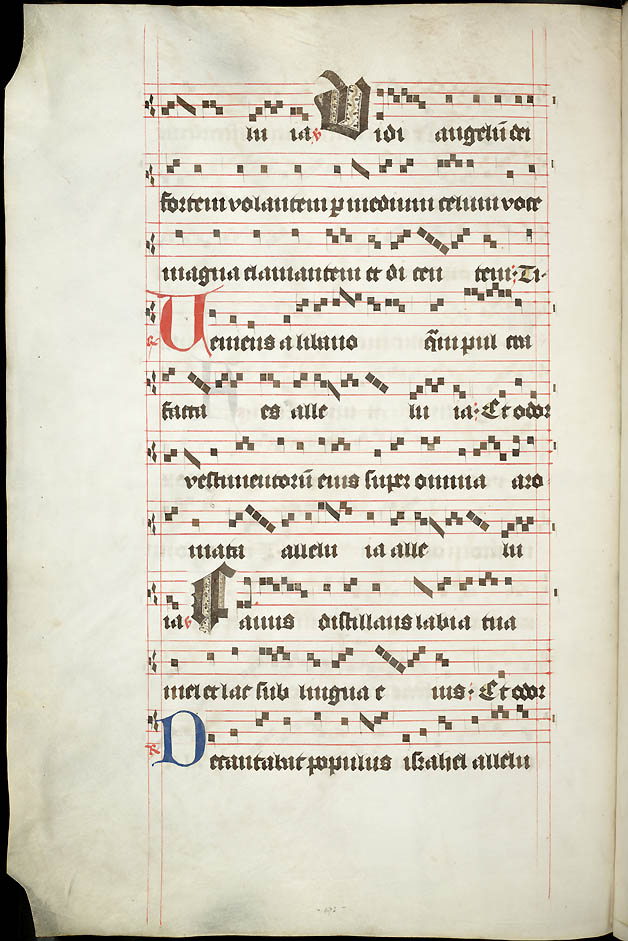 lu ia ℣ Vidi angelū dei
fortem volantem ꝑ medium celum voce
magna clamantem et di cen tem: Ti-
℟ Veniens a libano q̄m pul cra
facta es alle lu ia: Et odor
vestimentorū eius super omnia aro
mata allelu ia alle lu
ia ℣ Fauus distillans labia tua
mel et lac sub lingua e ius: Et odor
℟ Decantabat populus israhel allelu